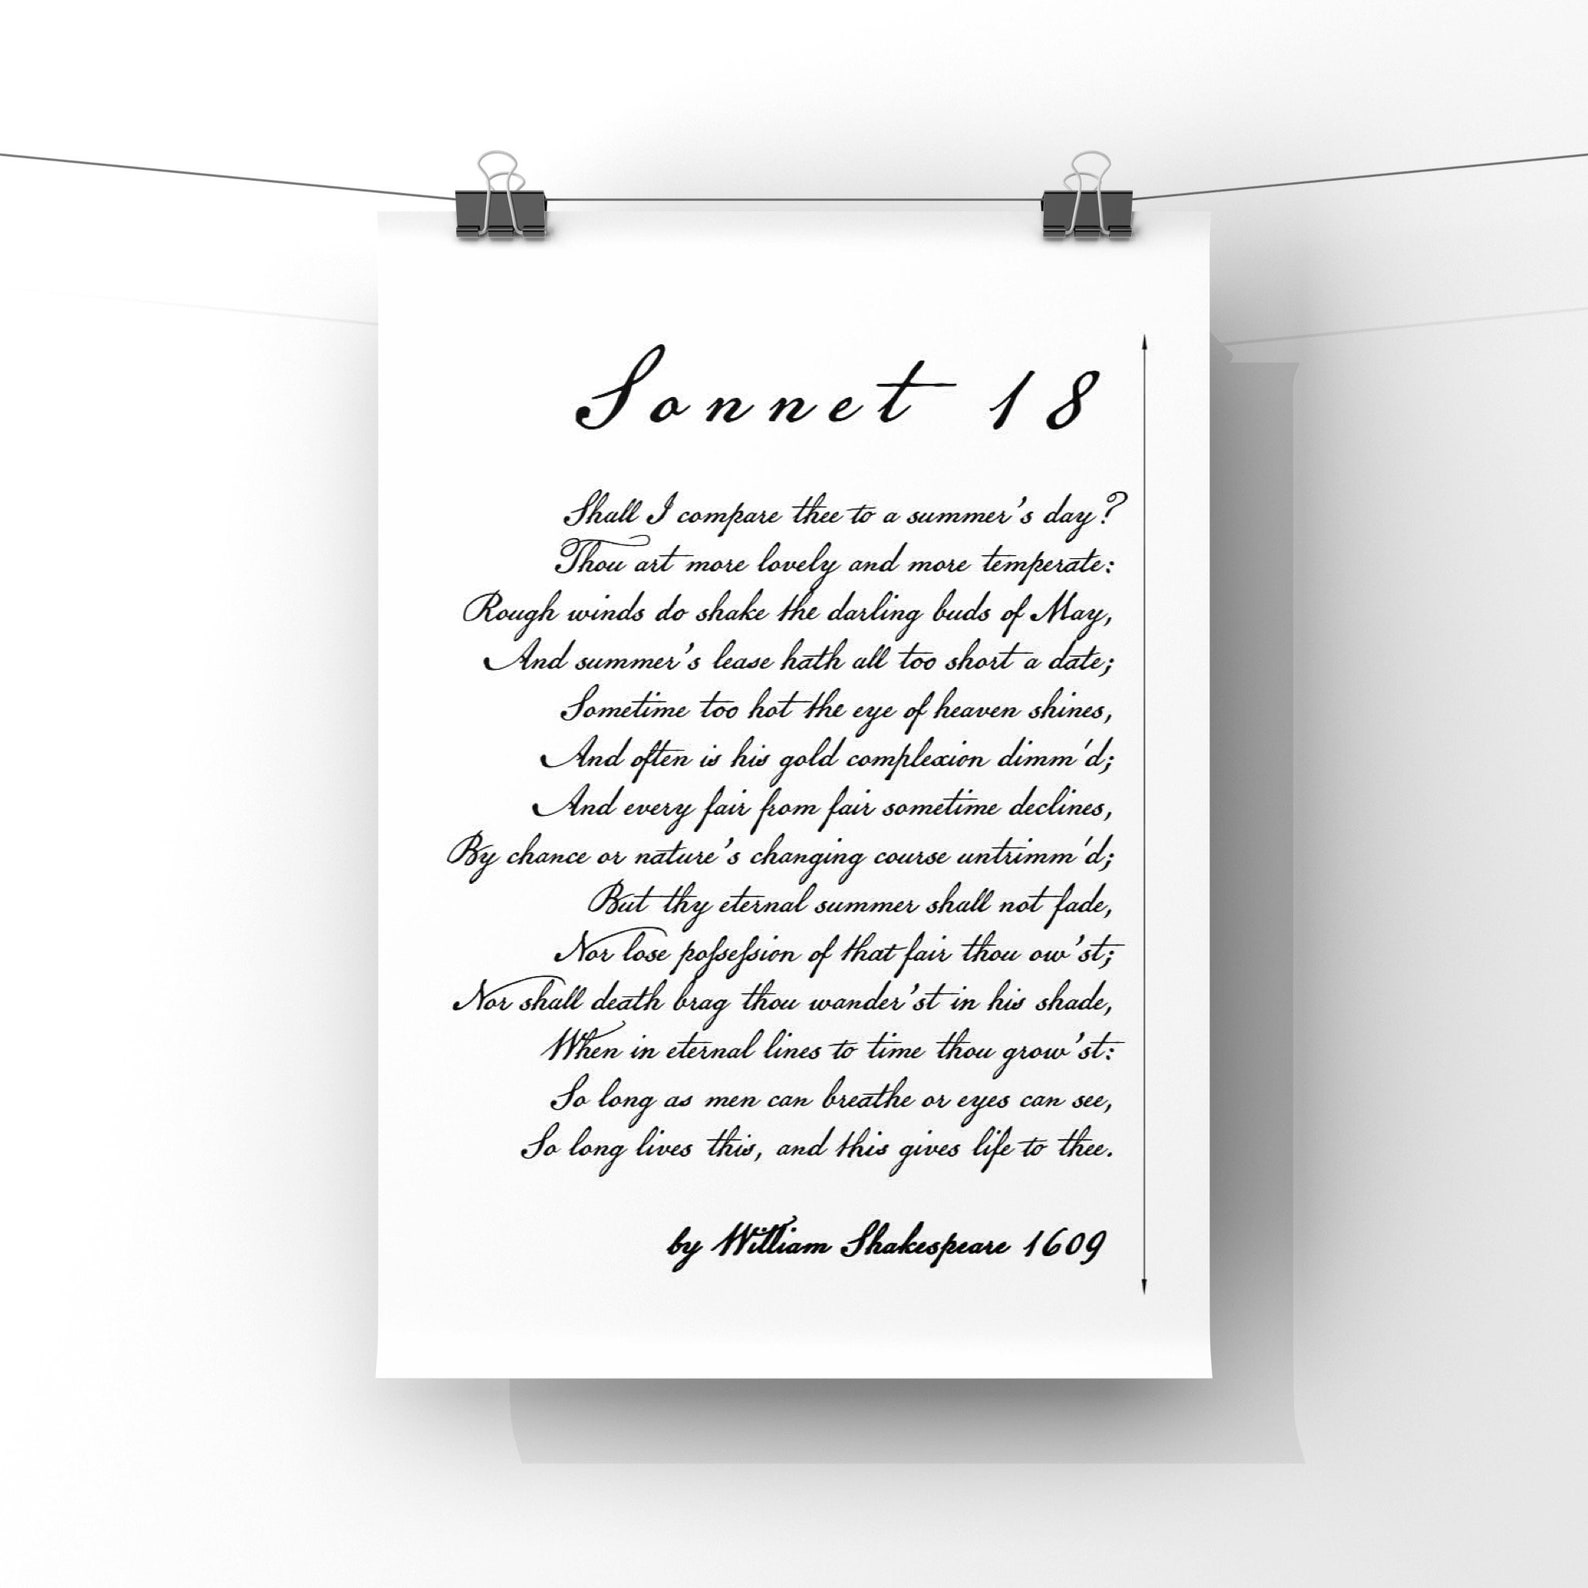 Sonnet 18
Shall I compare thee to a summer's day?
Thou art more lovely and more temperate:
Rough winds do shake the darling buds of May,
And summer's lease hath all too short a date;
Sometime too hot the eye of heaven shines,
And often is his gold complexion dimm'd;
And every fair from fair sometime declines,
By chance or nature's changing course untrimm'd;
But thy eternal summer shall not fade,
Nor lose poſseſsion of that fair thou ow'st;
Nor shall death brag thou wander'st in his shade,
When in eternal lines to time thou grow'st:
So long as men can breathe or eyes can see,
So long lives this, and this gives life to thee.
by William Shakespeare 1609